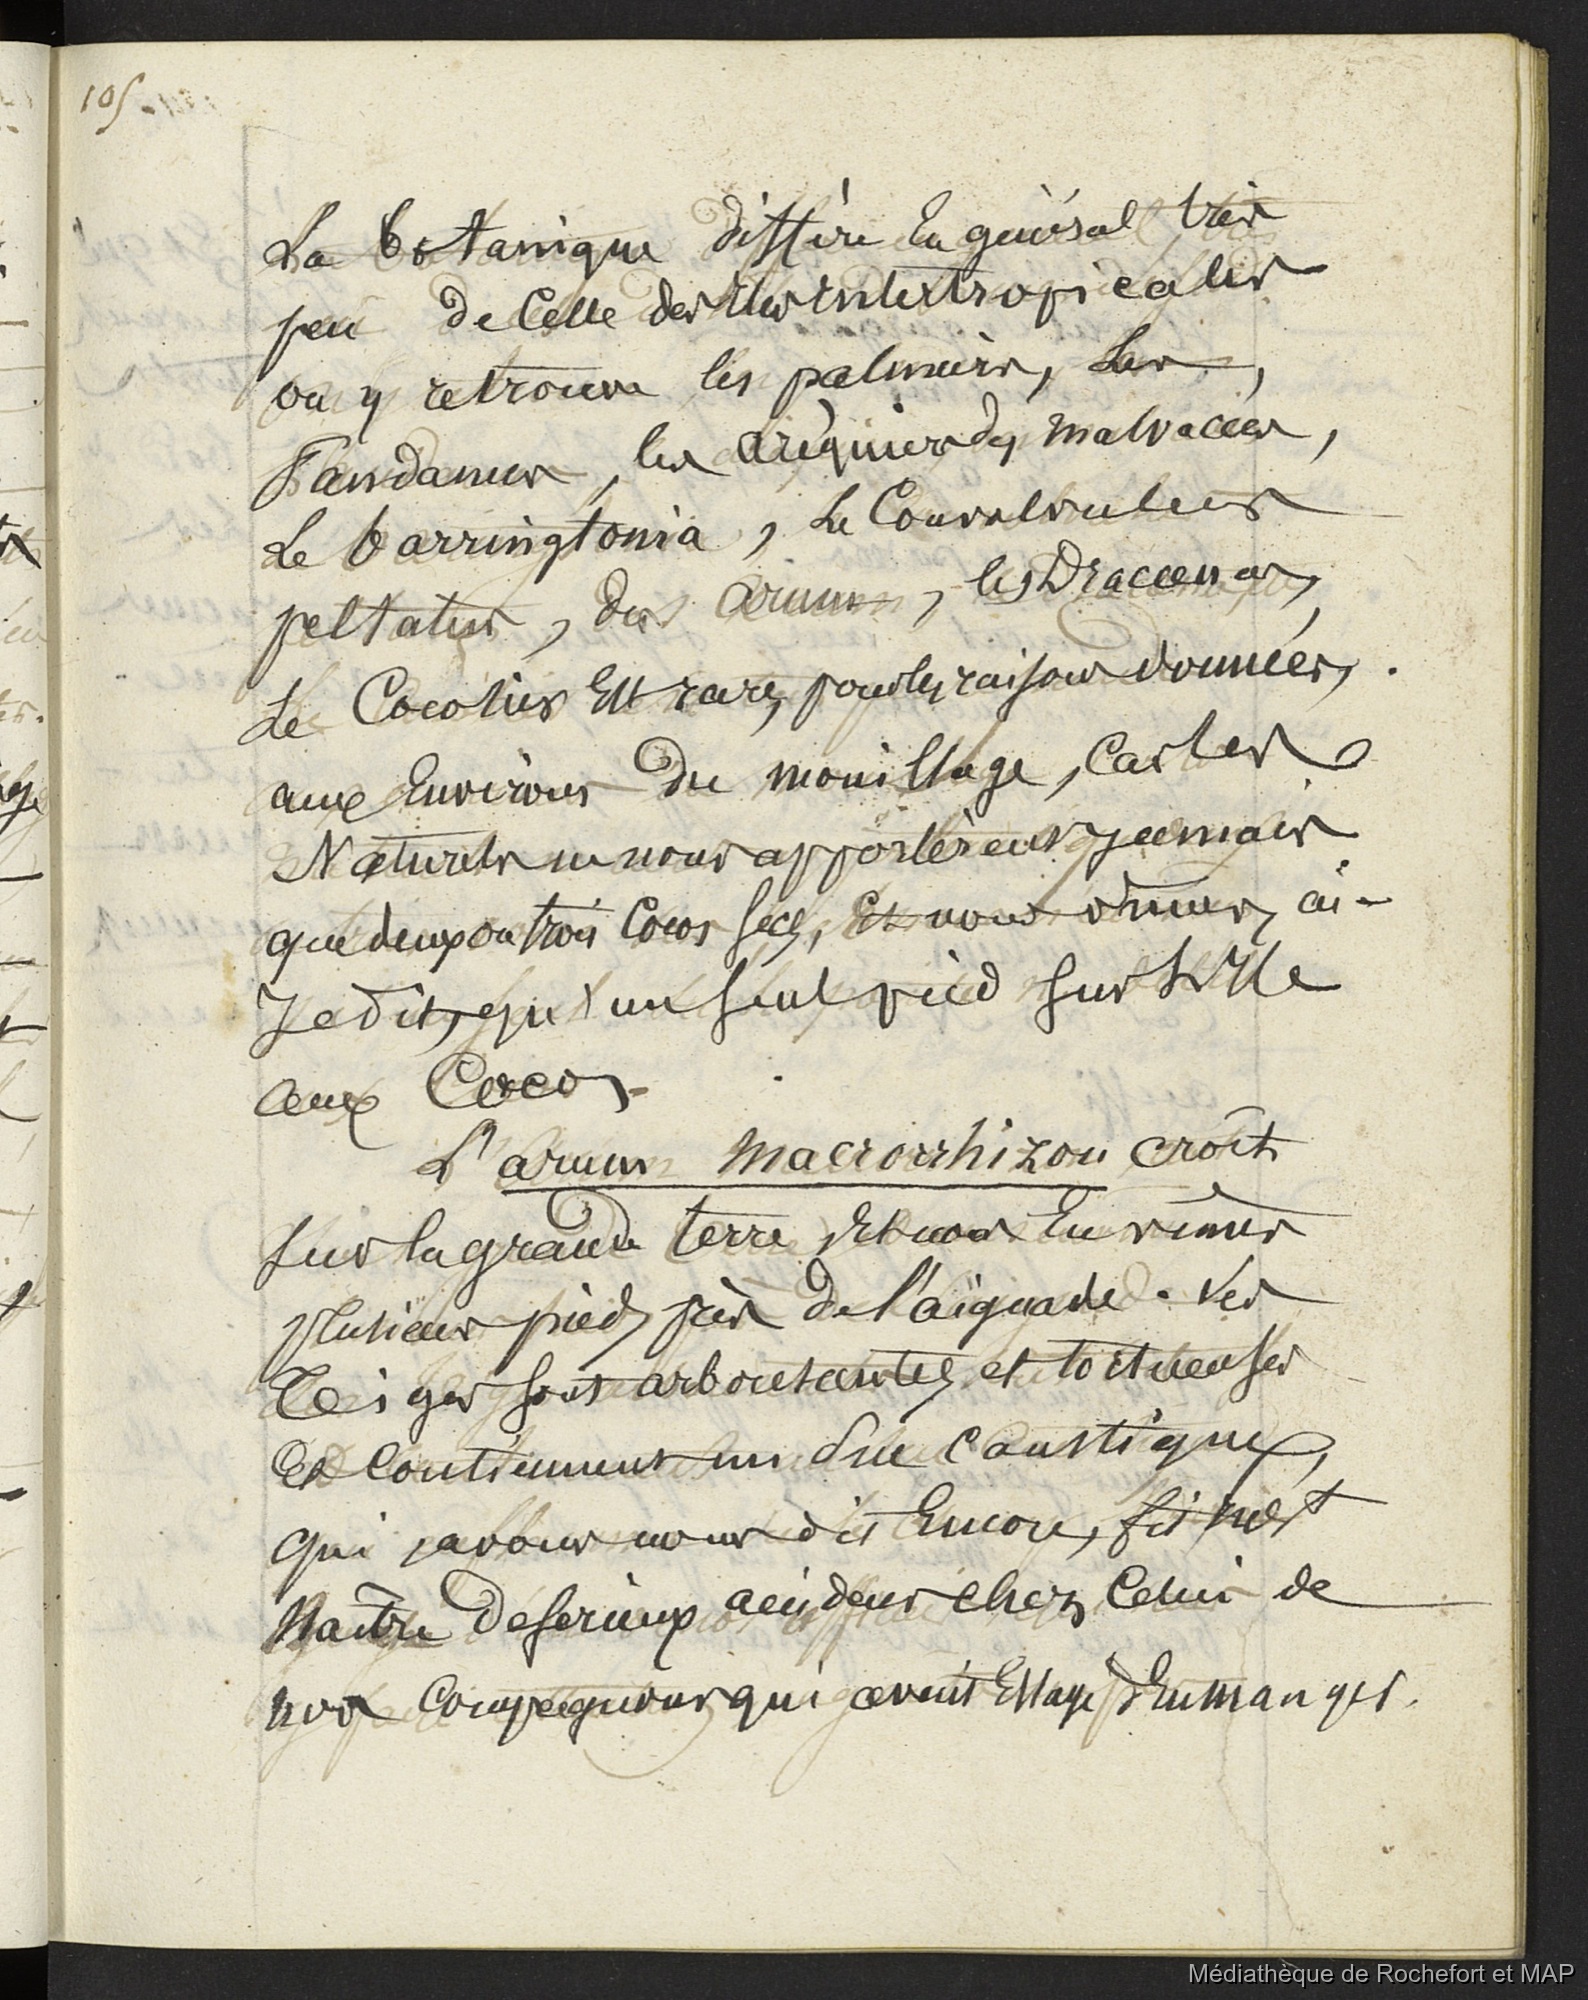 105
La botanique diffère En général très
peu de Celle des Iles intertropicales
on y retrouve les palmiers, les,
Pandanus, les aréquiers des malvacées,
Le barringtonia, le Convolvulus
peltatus, des arums, les Dracœnas,
Le Cocotier Est rare, pour les raisons données,
aux Environs du mouillage, Car les
Naturels ne nous apportèrent jamais
que deux ou trois Cocos secs, Et nous vîmes, ai-
Je dit, qu'un seul pied sur l'Ile
aux Cocos.
L'arum macrorrhizon croît
sur la grande terre, Et nous En vîmes
plusieurs pieds près de l'aiguade. Ses
Tiges sont arborescentes et tortueuses
Et Contiennent un suc Caustique,
qui avons nous dit Encore, fit
Naître de serieux accidens chez Celui de
nos Compagnons qui avait Essayé d'En manger.
Médiathèque de Rochefort et MAP